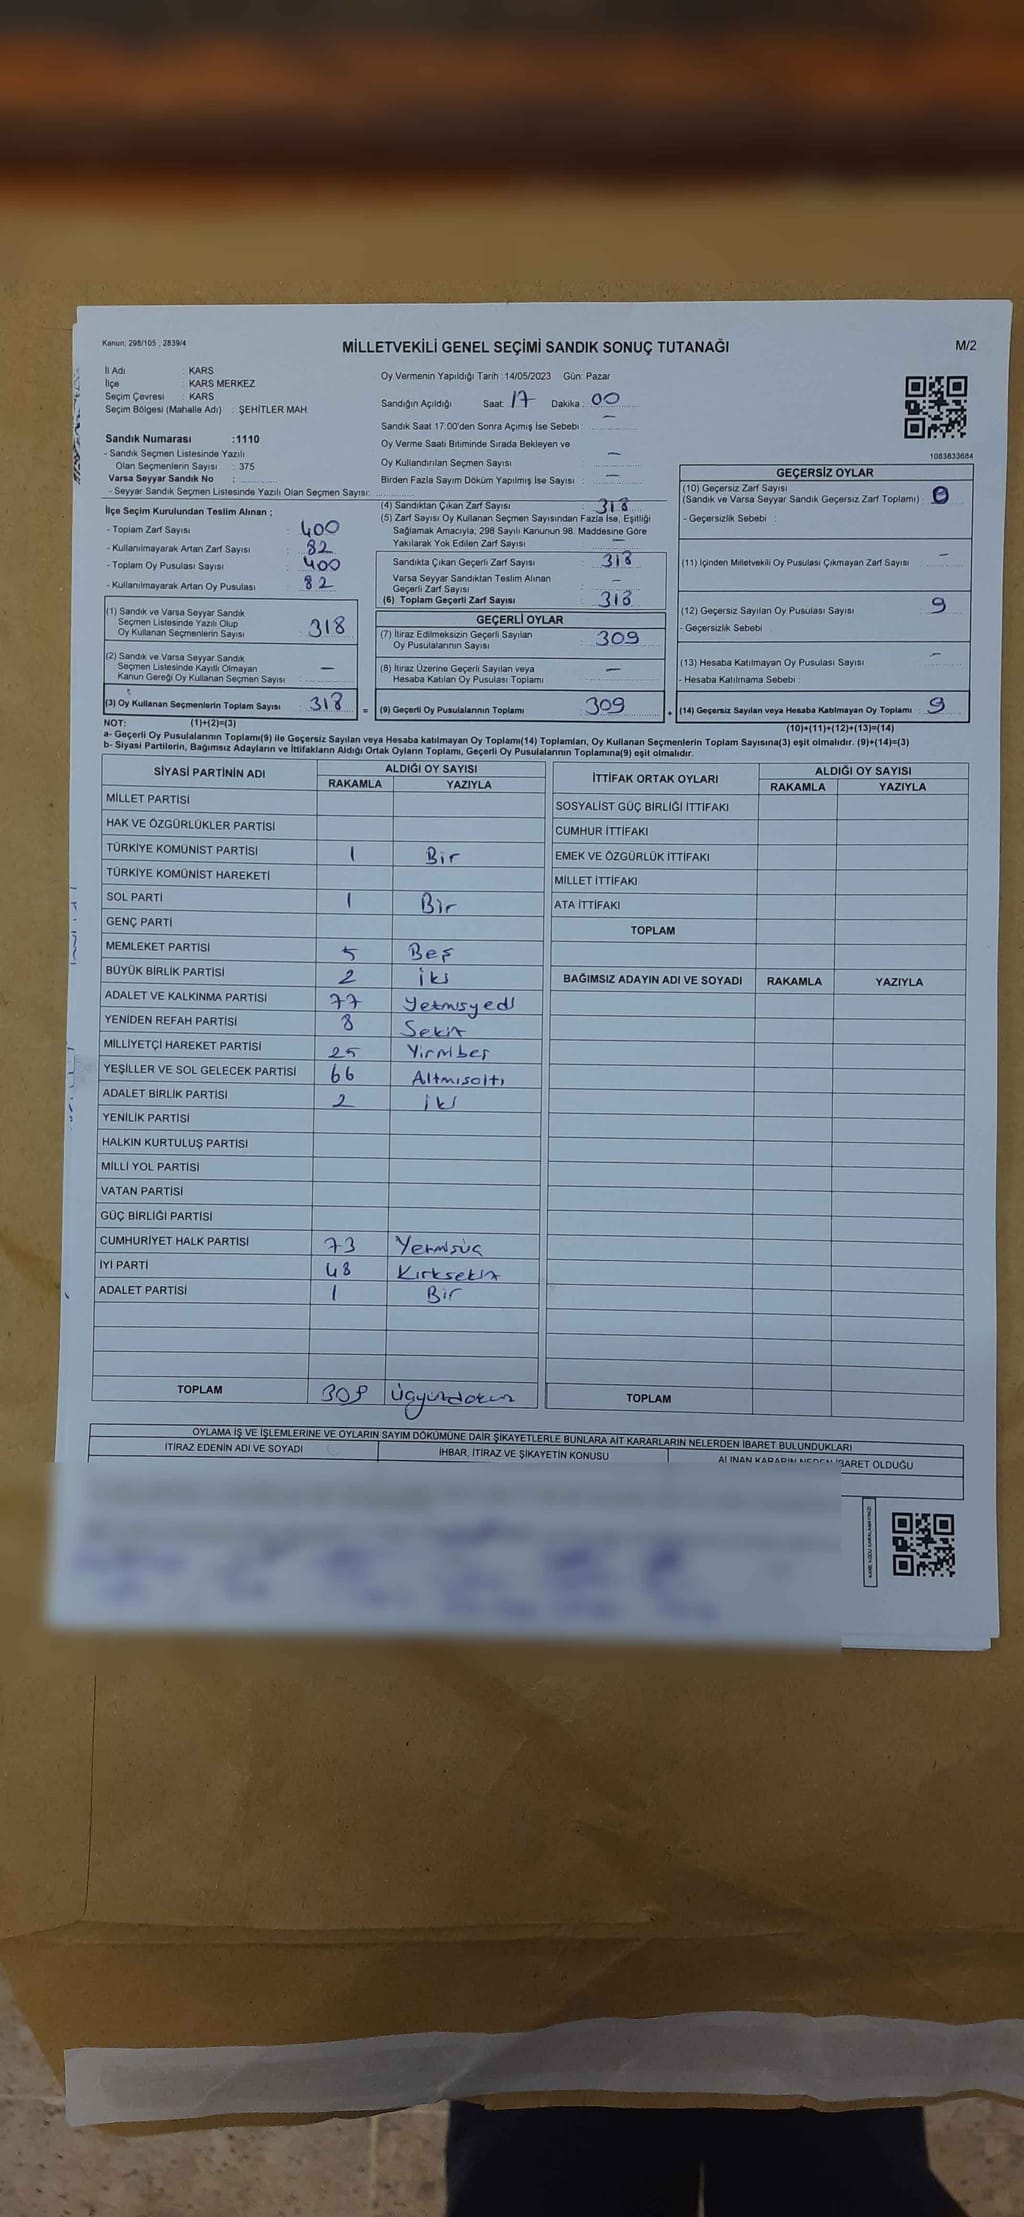 Kanun; 298/105 , 2839/4
MİLLETVEKİLİ GENEL SEÇİMİ SANDIK SONUÇ TUTANAĞI
M/2
İl Adı : KARS
İlçe : KARS MERKEZ
Seçim Çevresi : KARS
Seçim Bölgesi (Mahalle Adı) : ŞEHİTLER MAH.
Sandık Numarası :1110
- Sandık Seçmen Listesinde Yazılı
Olan Seçmenlerin Sayısı : 375
Varsa Seyyar Sandık No :
- Seyyar Sandık Seçmen Listesinde Yazılı Olan Seçmen Sayısı:
Oy Vermenin Yapıldığı Tarih :14/05/2023 Gün: Pazar
Sandığın Açıldığı Saat: 17 Dakika : 00
Sandık Saat 17:00'den Sonra Açımış İse Sebebi : –
Oy Verme Saati Bitiminde Sırada Bekleyen ve
Oy Kullandırılan Seçmen Sayısı : –
Birden Fazla Sayım Döküm Yapılmış İse Sayısı : –
1083833684
İlçe Seçim Kurulundan Teslim Alınan ;
- Toplam Zarf Sayısı : 400
- Kullanılmayarak Artan Zarf Sayısı : 82
- Toplam Oy Pusulası Sayısı : 400
- Kullanılmayarak Artan Oy Pusulası : 82
(1) Sandık ve Varsa Seyyar Sandık
Seçmen Listesinde Yazılı Olup
Oy Kullanan Seçmenlerin Sayısı : 318
(2) Sandık ve Varsa Seyyar Sandık
Seçmen Listesinde Kayıtlı Olmayan
Kanun Gereği Oy Kullanan Seçmen Sayısı : –
(3) Oy Kullanan Seçmenlerin Toplam Sayısı : 318 =
(4) Sandıktan Çıkan Zarf Sayısı : 318
(5) Zarf Sayısı Oy Kullanan Seçmen Sayısından Fazla İse, Eşitliği
Sağlamak Amacıyla, 298 Sayılı Kanunun 98. Maddesine Göre
Yakılarak Yok Edilen Zarf Sayısı : –
Sandıkta Çıkan Geçerli Zarf Sayısı : 318
Varsa Seyyar Sandıktan Teslim Alınan
Geçerli Zarf Sayısı : –
(6) Toplam Geçerli Zarf Sayısı : 318
GEÇERLİ OYLAR
(7) İtiraz Edilmeksizin Geçerli Sayılan
Oy Pusulalarının Sayısı : 309
(8) İtiraz Üzerine Geçerli Sayılan veya
Hesaba Katılan Oy Pusulası Toplamı : –
(9) Geçerli Oy Pusulalarının Toplamı : 309 +
GEÇERSİZ OYLAR
(10) Geçersiz Zarf Sayısı
(Sandık ve Varsa Seyyar Sandık Geçersiz Zarf Toplamı) :
- Geçersizlik Sebebi :
(11) İçinden Milletvekili Oy Pusulası Çıkmayan Zarf Sayısı : –
(12) Geçersiz Sayılan Oy Pusulası Sayısı : 9
- Geçersizlik Sebebi :
(13) Hesaba Katılmayan Oy Pusulası Sayısı : –
- Hesaba Katılmama Sebebi :
(14) Geçersiz Sayılan veya Hesaba Katılmayan Oy Toplamı : 9
NOT: (1)+(2)=(3)
(10)+(11)+(12)+(13)=(14)
a- Geçerli Oy Pusulalarının Toplamı(9) ile Geçersiz Sayılan veya Hesaba katılmayan Oy Toplamı(14) Toplamları, Oy Kullanan Seçmenlerin Toplam Sayısına(3) eşit olmalıdır. (9)+(14)=(3)
b- Siyasi Partilerin, Bağımsız Adayların ve İttifakların Aldığı Ortak Oyların Toplamı, Geçerli Oy Pusulalarının Toplamına(9) eşit olmalıdır.
SİYASİ PARTİNİN ADI ALDIĞI OY SAYISI
RAKAMLA YAZIYLA
MİLLET PARTİSİ
HAK VE ÖZGÜRLÜKLER PARTİSİ
TÜRKİYE KOMÜNİST PARTİSİ 1 Bir
TÜRKİYE KOMÜNİST HAREKETİ
SOL PARTİ 1 Bir
GENÇ PARTİ
MEMLEKET PARTİSİ 5 Beş
BÜYÜK BİRLİK PARTİSİ 2 iki
ADALET VE KALKINMA PARTİSİ 77 Yetmisyedi
YENİDEN REFAH PARTİSİ 8 Sekiz
MİLLİYETÇİ HAREKET PARTİSİ 25 Yirmibeş
YEŞİLLER VE SOL GELECEK PARTİSİ 66 Altmısaltı
ADALET BİRLİK PARTİSİ 2 iki
YENİLİK PARTİSİ
HALKIN KURTULUŞ PARTİSİ
MİLLİ YOL PARTİSİ
VATAN PARTİSİ
GÜÇ BİRLİĞİ PARTİSİ
CUMHURİYET HALK PARTİSİ 73 Yetmisüç
İYİ PARTİ 48 Kırksekiz
ADALET PARTİSİ 1 Bir
TOPLAM 309 Üçyüzdokuz
İTTİFAK ORTAK OYLARI ALDIĞI OY SAYISI
RAKAMLA YAZIYLA
SOSYALİST GÜÇ BİRLİĞİ İTTİFAKI
CUMHUR İTTİFAKI
EMEK VE ÖZGÜRLÜK İTTİFAKI
MİLLET İTTİFAKI
ATA İTTİFAKI
TOPLAM
BAĞIMSIZ ADAYIN ADI VE SOYADI RAKAMLA YAZIYLA
TOPLAM
OYLAMA İŞ VE İŞLEMLERİNE VE OYLARIN SAYIM DÖKÜMÜNE DAİR ŞİKAYETLERLE BUNLARA AİT KARARLARIN NELERDEN İBARET BULUNDUKLARI
İTİRAZ EDENİN ADI VE SOYADI İHBAR, İTİRAZ VE ŞİKAYETİN KONUSU ALINAN KARARIN NEDEN İBARET OLDUĞU